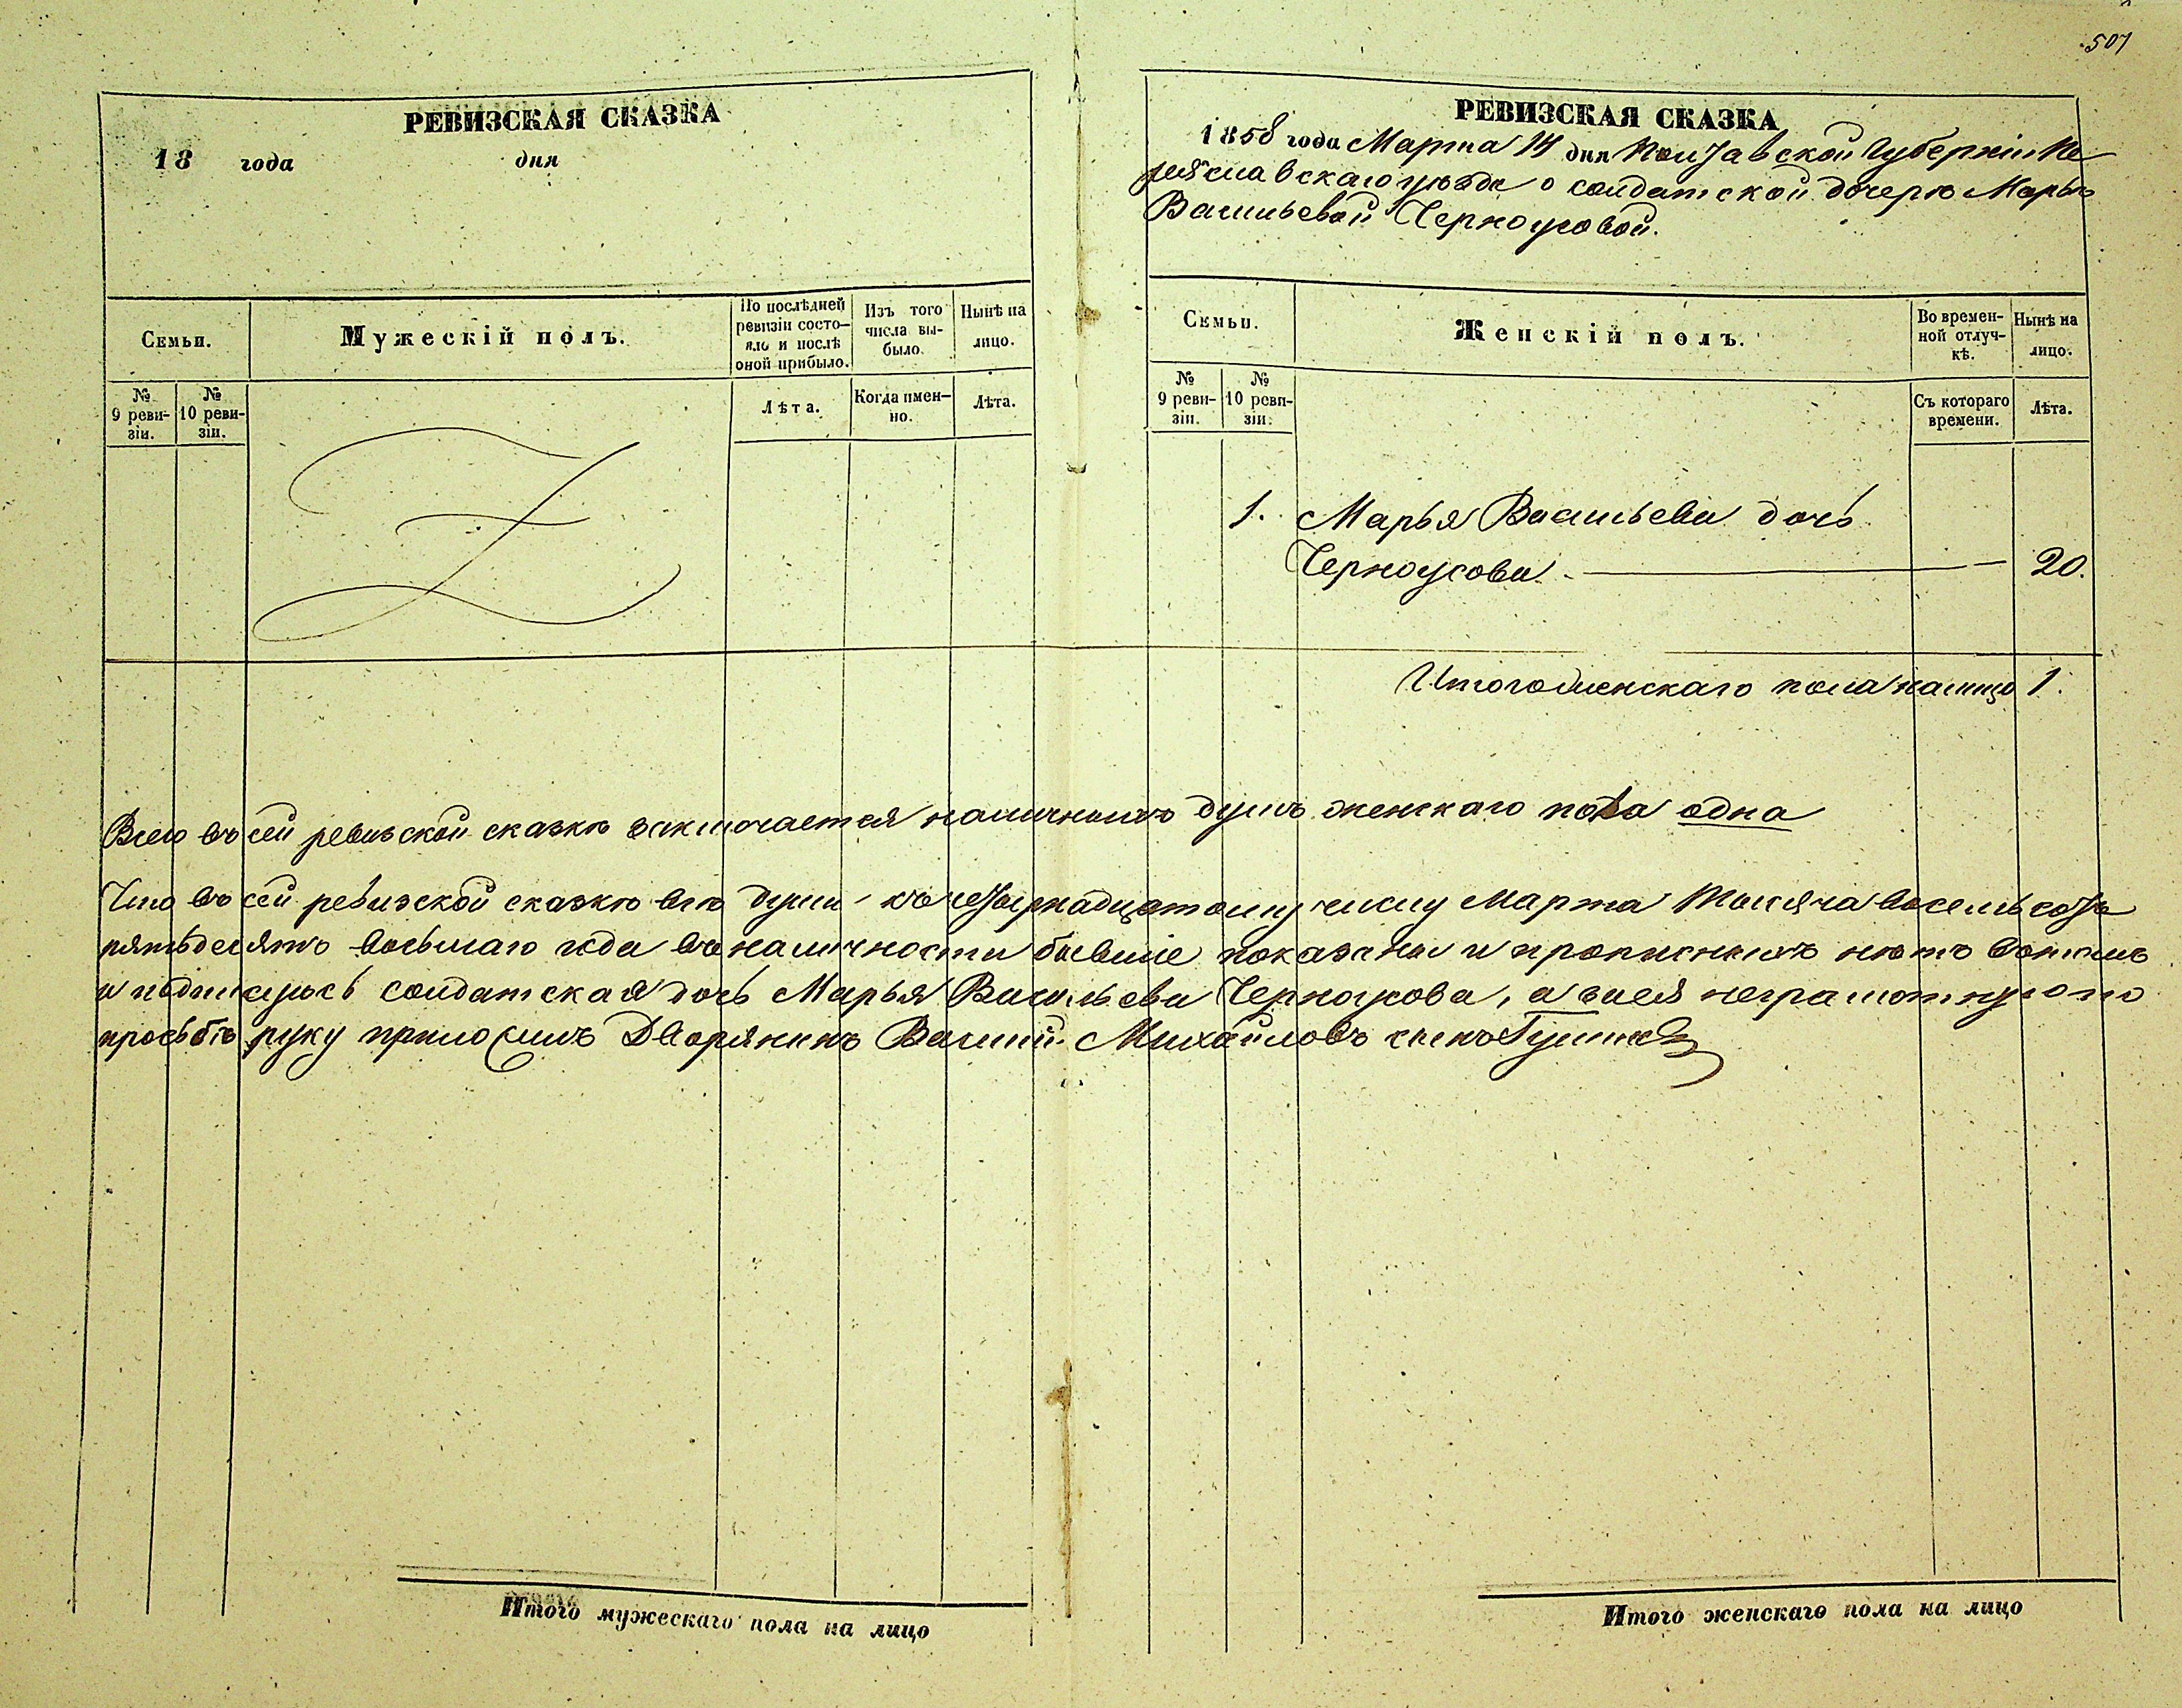 507
РЕВИЗСКАЯ СКАЗКА
18 года дня
Семьи.
Мужескій полъ.
По послѣдней ревизіи состо-
яло и послѣ оной прибыло.
Изъ того числа вы-
было.
Нынѣ на лицо.
№ 9 реви-
зіи.
№ 10 реви-
зіи.
Лѣта.
Когда имен-
но.
Лѣта.
РЕВИЗСКАЯ СКАЗКА
1858 года Марта 14 дня Полтавской Губерніи Пе
реяславскаго уѣзда о солдатской дочерѣ Марьѣ
Васильевой Черноусовой.
Семьи.
Женскій полъ.
Во времен-
ной отлуч-
кѣ.
Нынѣ на лицо.
№ 9 реви-
зіи.
№ 10 реви-
зіи.
Съ котораго времени.
Лѣта.
1. Марья Васильева дочь
Черноусова. — 20.
Итого женскаго пола налицо 1.
Всего въ сей ревизской сказкѣ заключается наличныхъ душъ женскаго пола одна
Что въ сей ревизской сказкѣ всѣ души къ четырнадцатому числу Марта Тысяча восемьсотъ
пятьдесятъ восьмаго года въ наличности бывшіе показаны и прописныхъ нѣтъ вотомъ
и подписуюсь солдатская дочь Марья Васильева Черноусова, а заея неграмотную по
просьбѣ руку приложилъ Дворянинъ Василій Михайловъ сынъ
Итого мужескаго пола на лицо
Итого женскаго пола на лицо